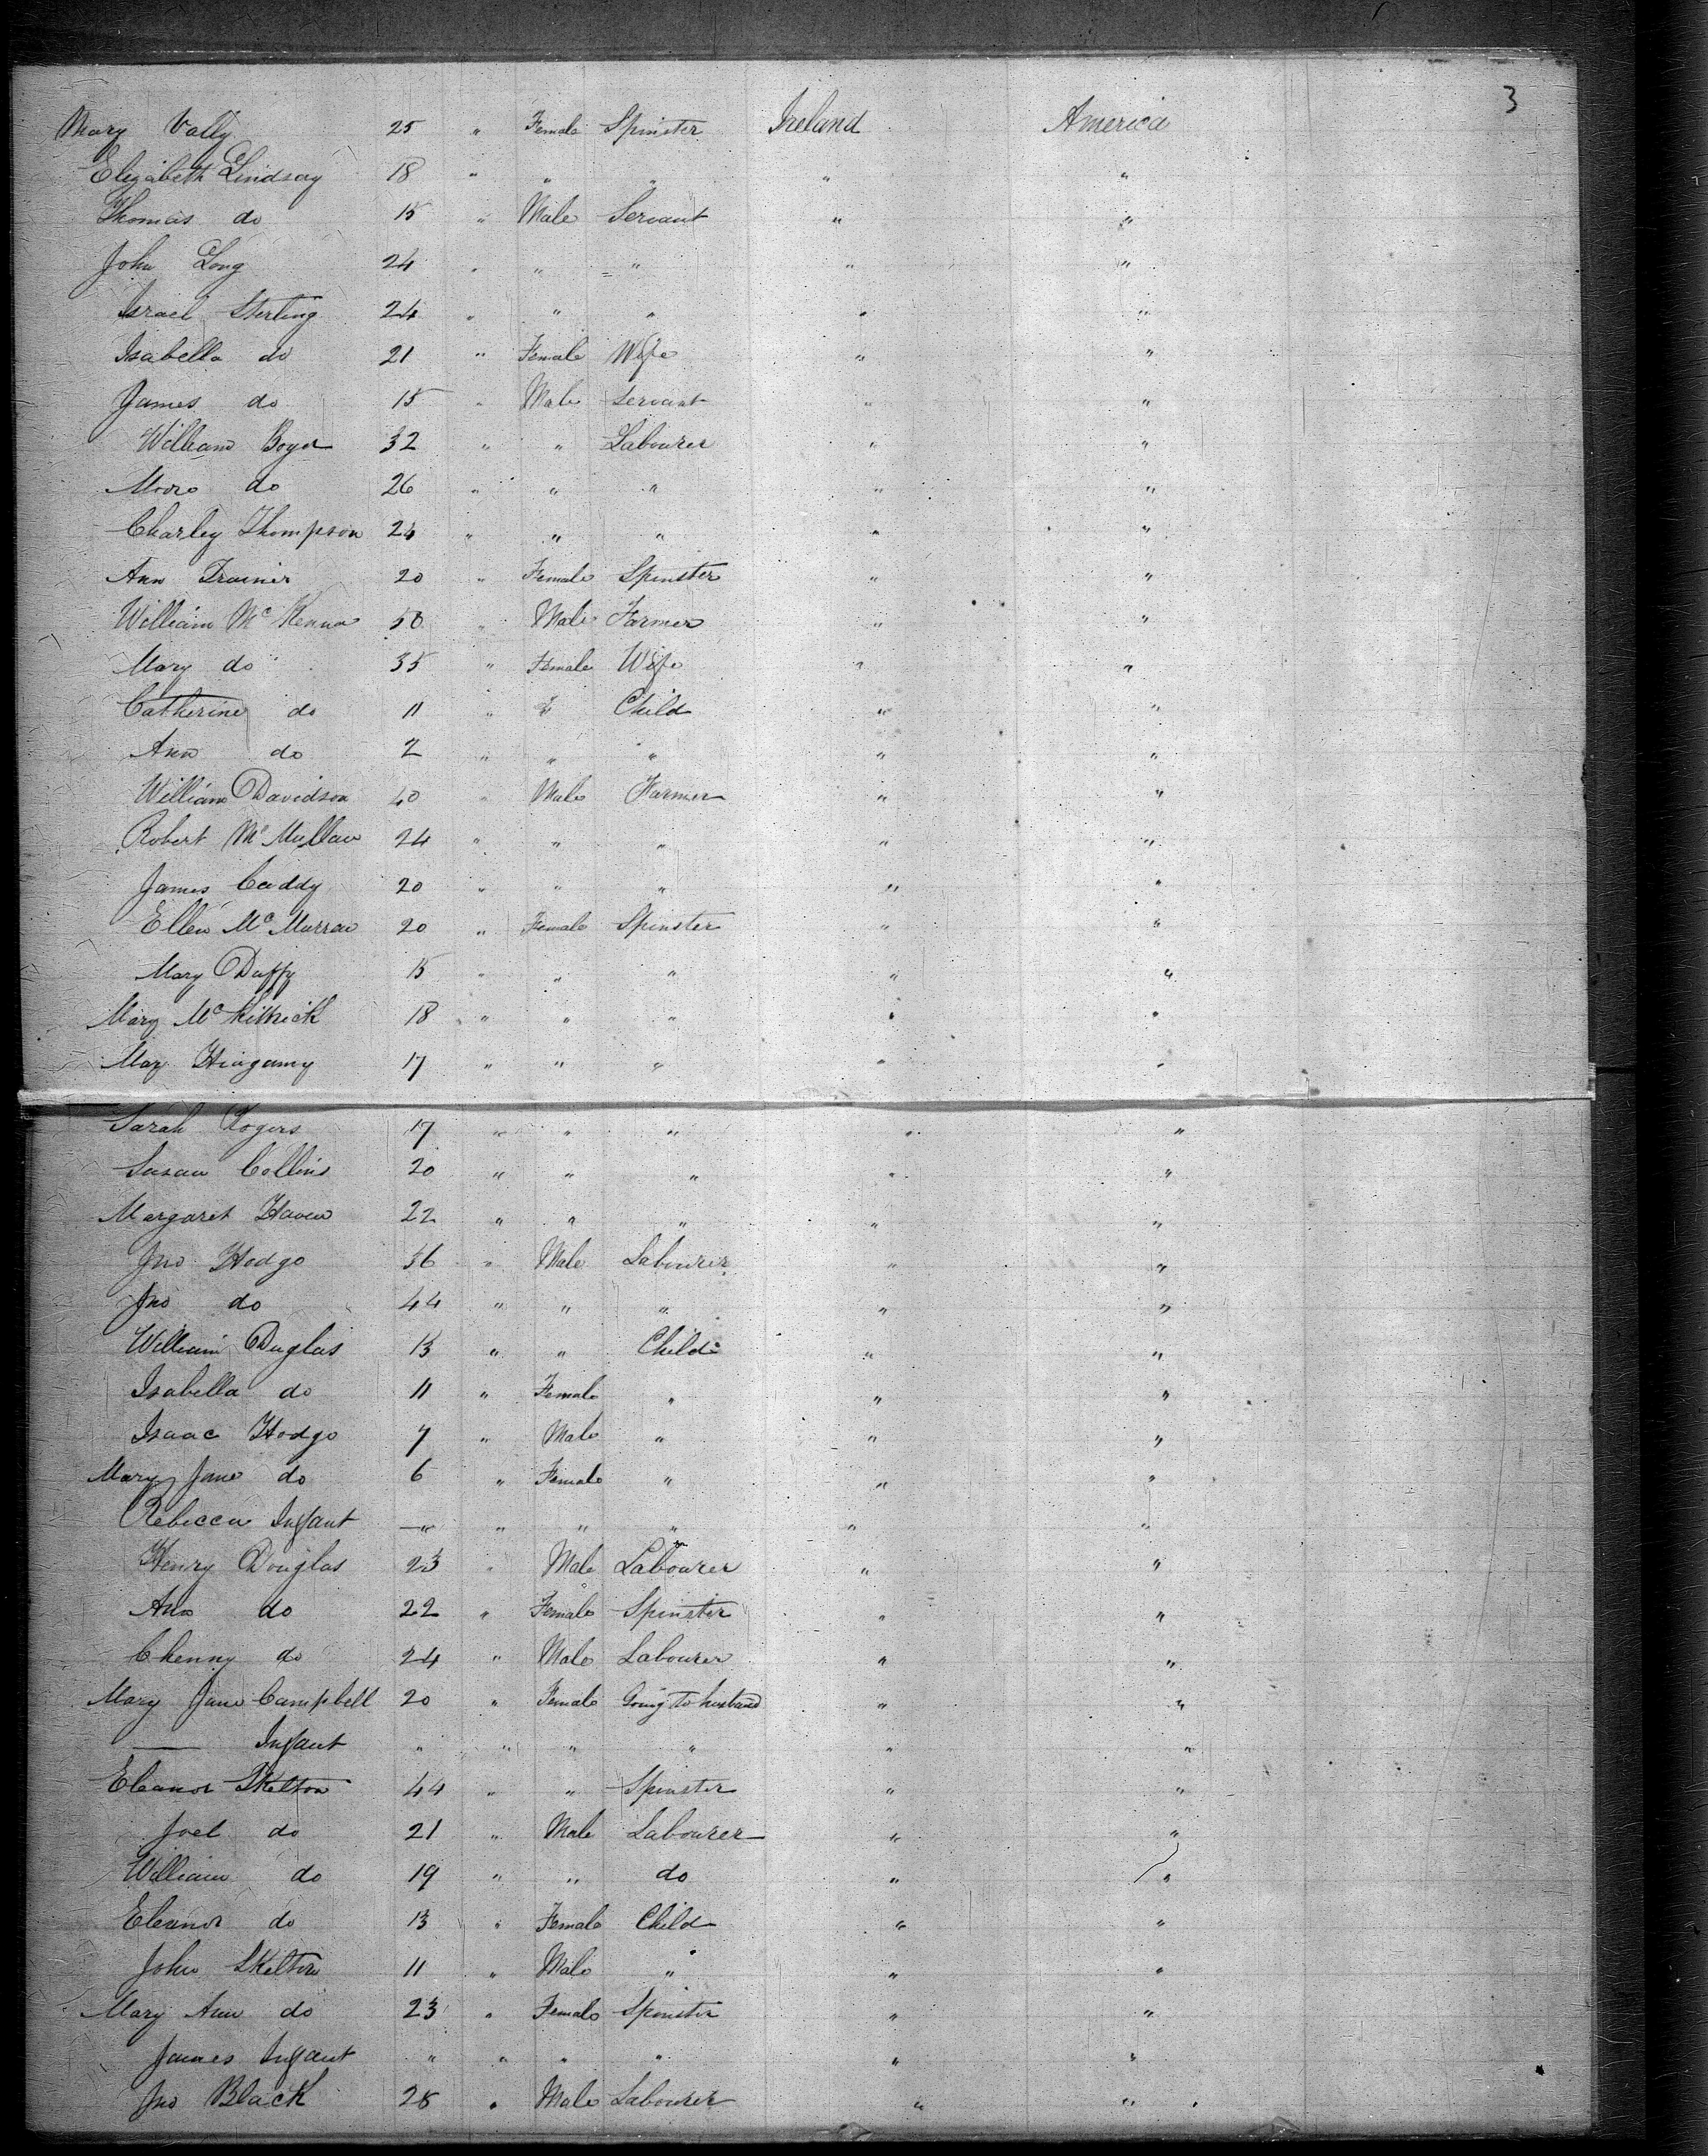 3
Mary Vally 25 " Female Spinster Ireland America
Elizabeth Lindsay 18 " " " " "
Thomas do 15 " Male Servant " "
John Long 24 " " " " "
Israel Sterling 24 " " " " "
Isabella do 21 " Female Wife " "
James do 15 " Male Servant " "
William Boyd 32 " " Labourer " "
Moore do 26 " " " " "
Charley Thompson 24 " " " " "
Ann Trainer 20 " Female Spinster " "
William McKenna 50 " Male Farmer " "
Mary do 35 " Female Wife " "
Catherine do 11 " " Child " "
Ann do 2 " " " " "
William Davidson 40 " Male Farmer " "
Robert McMullan 24 " " " " "
James Caddy 20 " " " " "
Ellen McMurran 20 " Female Spinster " "
Mary Duffy 15 " " " " "
Mary McKitrick 18 " " " " "
Mary 17 " " " " "
Sarah Rogers 17 " " " " "
Susan Collins 20 " " " " "
Margaret Haven 22 " " " " "
Jno Hodge 36 " Male Labourer " "
Jno do 44 " " " " "
William Duglas 13 " " Child " "
Isabella do 11 " Female " " "
Isaac Hodge 7 " Male " " "
Mary Jane do 6 " Female " " "
Rebecca Infant — " " " " "
Henry Douglas 23 " Male Labourer " "
Ann do 22 " Female Spinster " "
Chenny do 24 " Male Labourer " "
Mary Jane Campbell 20 " Female Going to husband " "
— Infant " " " " " "
Eleanor Skelton 44 " " Spinster " "
Joel do 21 " Male Labourer " "
William do 19 " " do " "
Eleanor do 13 " Female Child " "
John Skelton 11 " Male " " "
Mary Ann do 23 " Female Spinster " "
James Infant " " " " " "
Jno Black 25 " Male Labourer " "